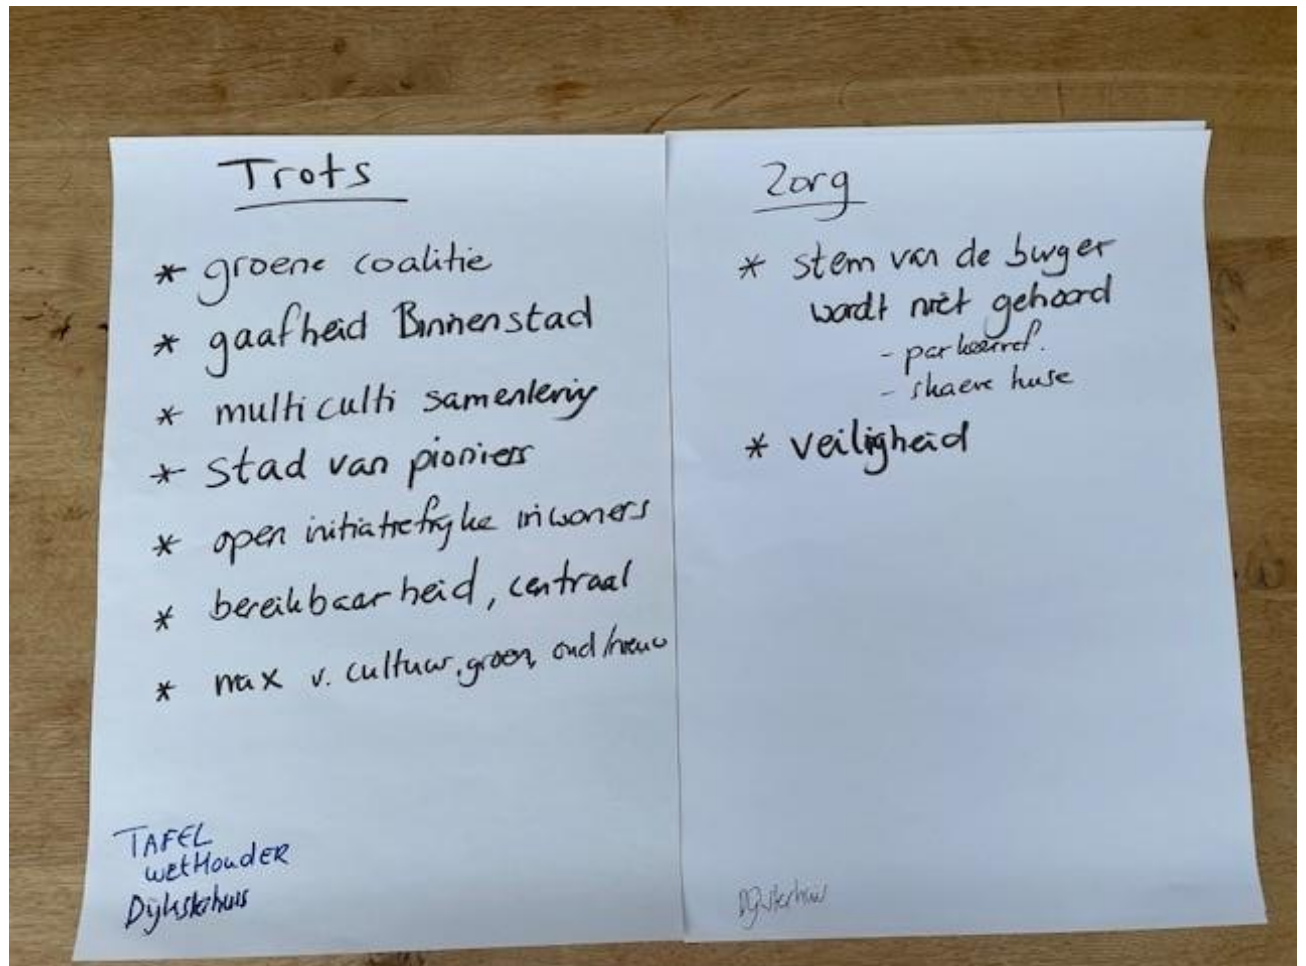 Trots
* groene coalitie
* gaafheid Binnenstad
* multiculti samenleving
* stad van pioniers
* open initiatiefrijke inwoners
* bereikbaarheid, centraal
* max v. cultuur, groen, oud/nieuw
TAFEL
wetHouder
Dijksterhuis
Zorg
* stem van de burger
wordt niet gehoord
- parkeerref.
- skaeve huse
* veiligheid
Dijksterhuis